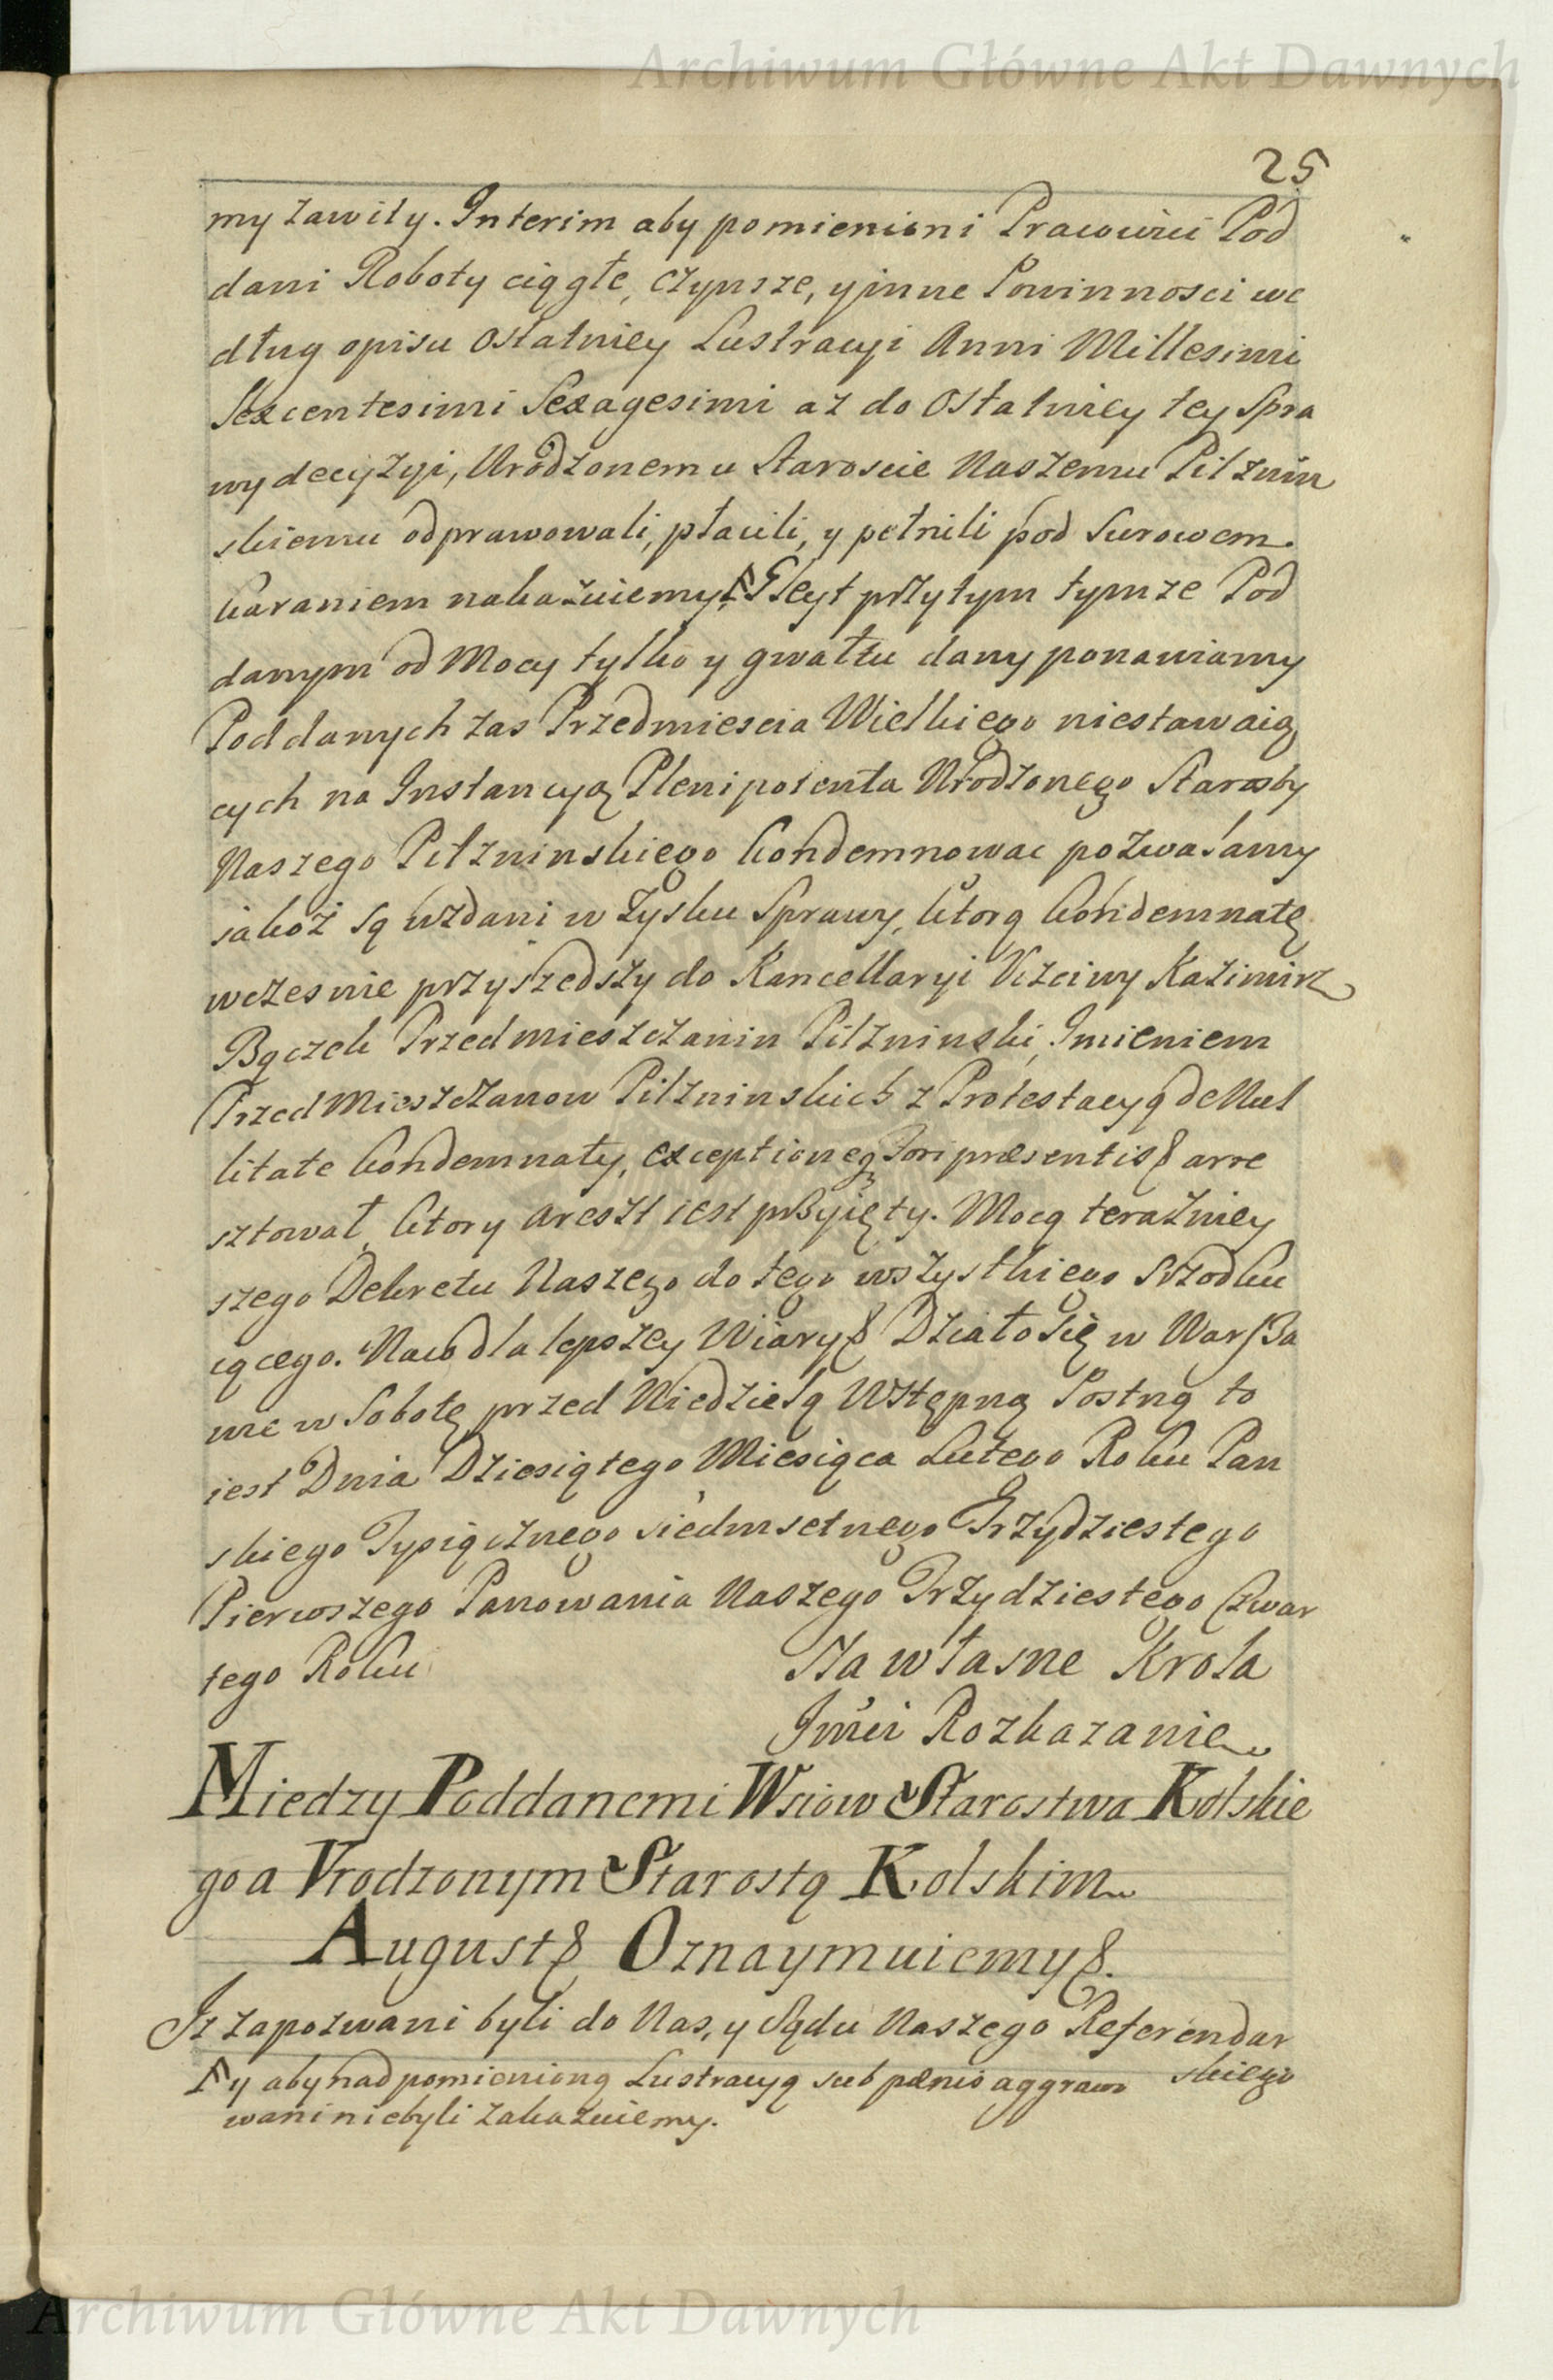 Archiwum Główne Akt Dawnych
25
my zawity. Interim aby pomienieni Pracowici Pod
dani Roboty ciągłe, czynsze, y inne Powinnosci we
dług opisu ostatniey Lustracyi Anni Millesimi
Sexcentesimi Sexagesimi aż do ostatniey tey Spra
wy decyzyi, Urodzonemu Staroscie Naszemu Pilznin
skiemu odprawowali, płacili, y pełnili pod surowem
karaniem nakazuiemy. Gleyt przytym tymże Pod
danym od Mocy tylko y gwałtu dany ponawiamy
Poddanych zas Przedmiescia Wielkiego niestawaią
cych na Instancyą Plenipotenta Urodzonego Starosty
Naszego Pilzninskiego kondemnowac pozwalamy
iakoż są wzdani w zysku Sprawy, ktorą kondemnatę
wczesnie przyszedszy do Kancellaryi Uczciwy Kazimirz
Bączek Przedmieszczanin Pilzninski, Imieniem
Przedmieszczanow Pilzninskich z Protestacyą de Nul
litate kondemnaty, exceptioneq Fori præsentis& arre
sztował, ktory areszt iest przyięty. Mocą teraźniey
szego Dekretu Naszego do tego wszystkiego srzodku
iącego. Na co dla lepszey Wiary& Działo się w Warsza
wie w Sobotę przed Niedzielą Wstępną Postną to
iest Dnia Dziesiątego Miesiąca Lutego Roku Pan
skiego Tysiącznego siedmsetnego Trzydziestego
Pierwszego Panowania Naszego Trzydziestego Czwar
tego Roku
Na własne Krola
Jmći Rozkazanie
Miedzy Poddanemi Wsiow Starostwa Kolskie
go a Vrodzonym Starostą Kolskim
August& Oznaymuiemy&.
Iż zapozwani byli do Nas, y Sądu Naszego Referendar
skiego
y aby nad pomienioną Lustracyą sub pænis aggrawo
wani niebyli zakazuiemy.
Archiwum Główne Akt Dawnych